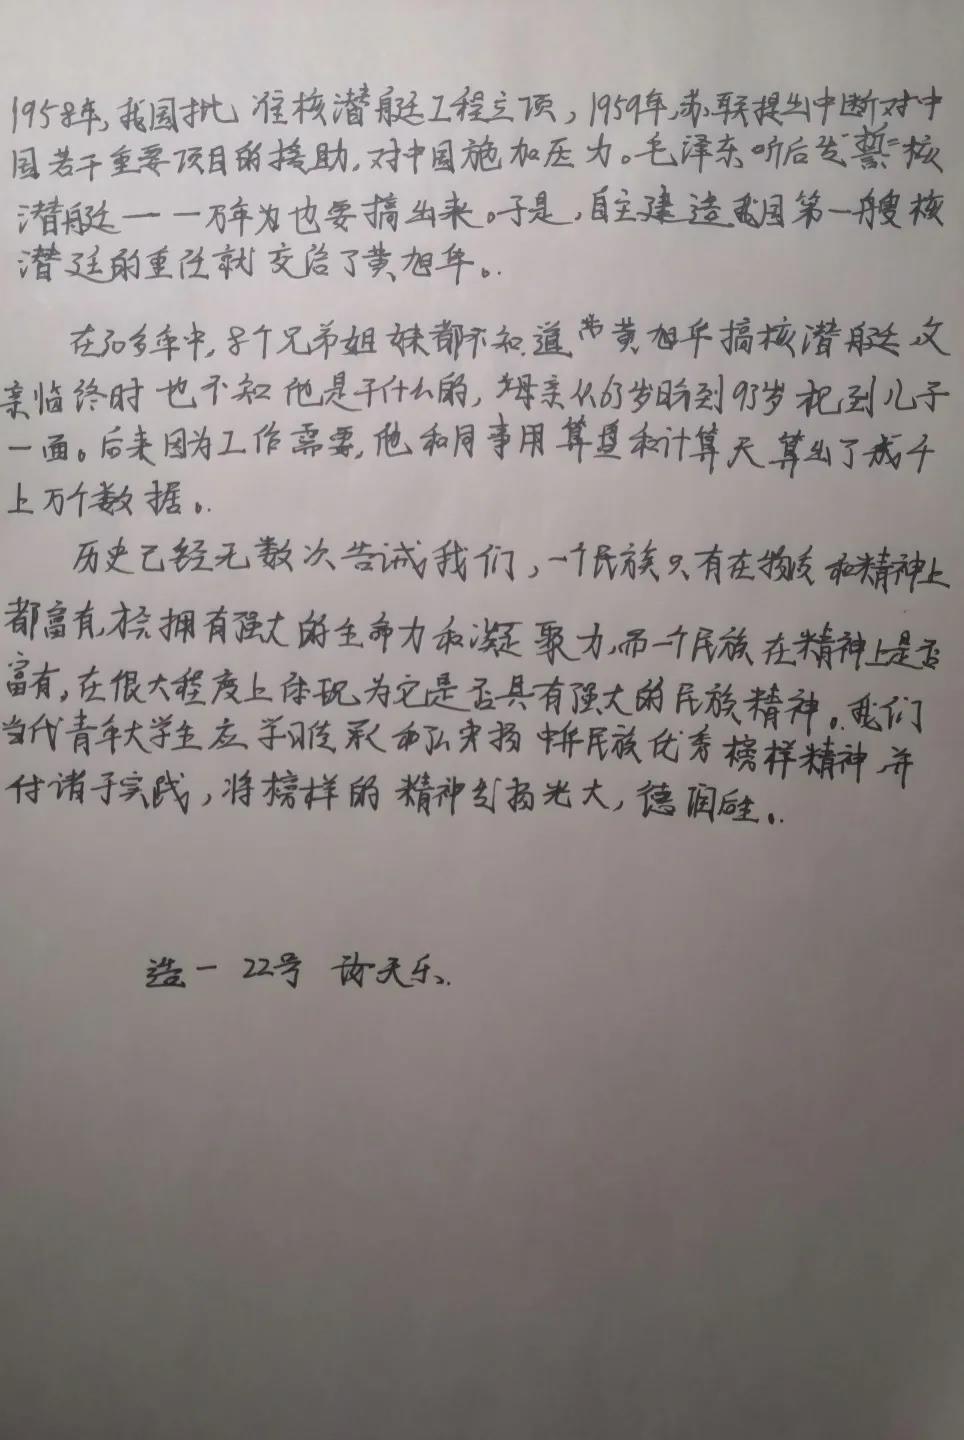 1958年,我国批准核潜艇工程立项,1959年,苏联提出中断对中
国若干重要项目的援助,对中国施加压力。毛泽东听后发誓"核
潜艇——一万年为也要搞出来。于是,自主建造我国第一艘核
潜廷的重任就交治了黄旭华。
在30多年中,8个兄弟姐妹都不知道 黄旭华搞核潜艇,父
亲临终时也不知他是干什么的,母亲从63岁盼到93岁才见到儿子
一面。后来因为工作需要,他和同事用算盘和计算天算出了成千
上万个数据。
历史已经无数次告诫我们,一个民族只有在物质和精神上
都富有,才会拥有强大的生命力和凝聚力,而一个民族在精神上是否
富有,在很大程度上体现为它是否具有强大的民族精神。我们
当代青年大学生应学习传承和弘扬中华民族优秀榜样精神,并
付诸于实践,将榜样的精神发扬光大,德润后生。
造一 22号 天乐